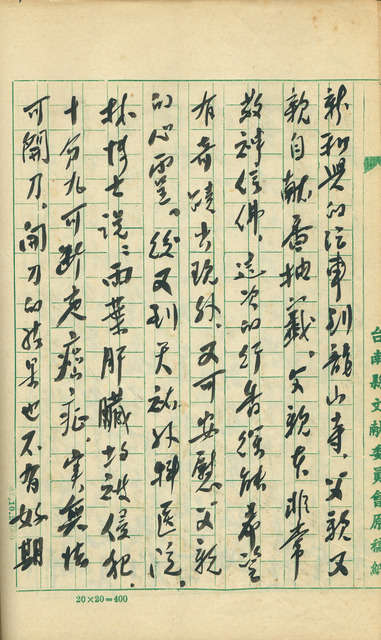 新和興的汽車到龍山寺。父親又
親自献香抽籤。父親本非常
敬神信佛，這次的行香羅能希望
有奇蹟出現外，又可安慰父親
的心靈。後又到天祐外科医院。
林博士説：兩葉肝臟均被侵犯，
十分九可断定癌症。実無法
可開刀。開刀的結果也不有好期
台南縣文献委員會原稿紙
20×20=400